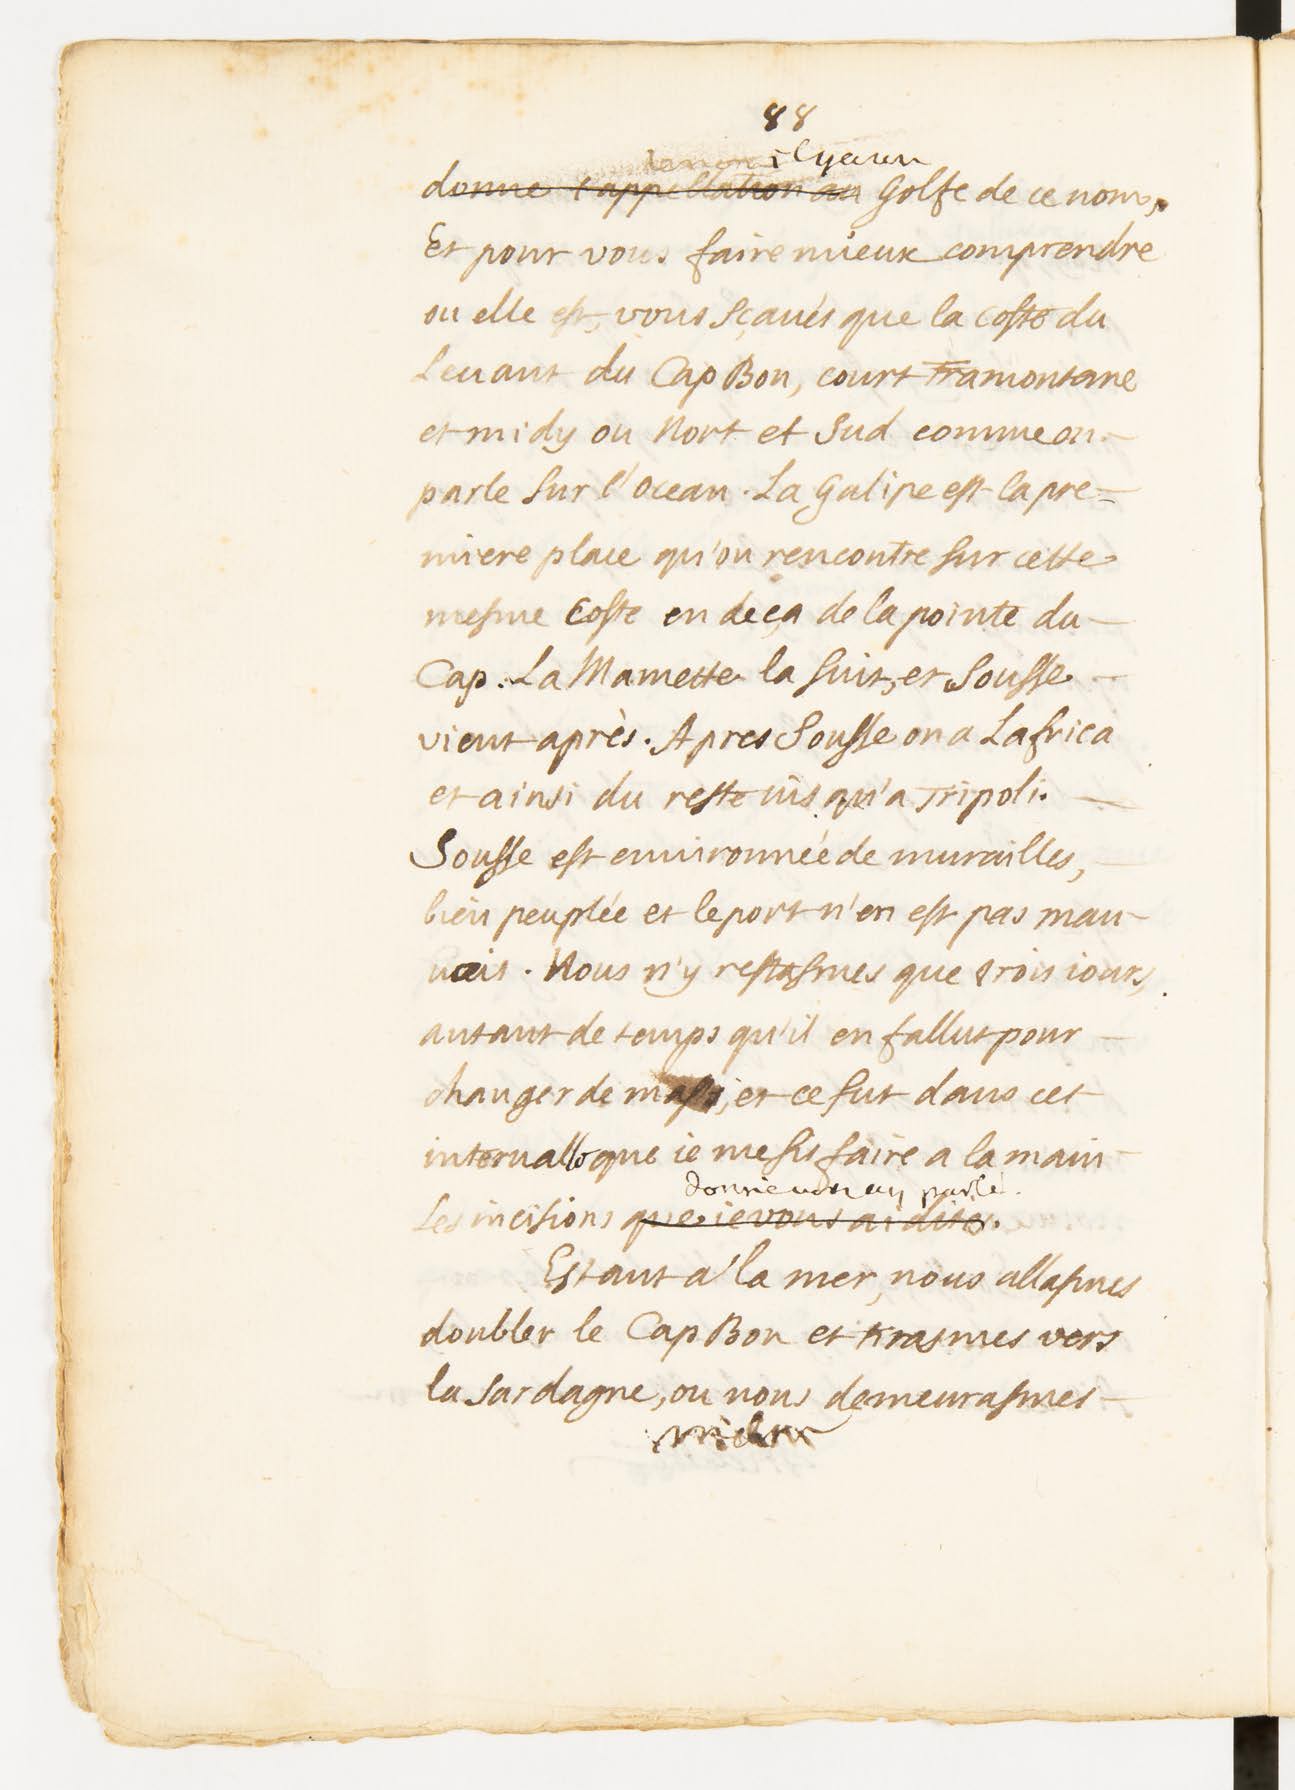 88
il y a un
donne l'appellation au Golfe de ce nom,
Et pour vous faire mieux comprendre
ou elle est, vous sçaués que la coste du
Leuant du Cap Bon, court Tramontane
et midy ou Nort et Sud comme on
parle sur l'ocean. La Galipe est la pre-
miere place qu'on rencontre sur cette
mesme Coste en deça de la pointe du
Cap. La Mamette la suit, et Sousse
vient après. Apres Sousse on a Lafrica
et ainsi du reste iusqu'a Tripoli.
Sousse est enuironnée de murailles,
bien peuplée et le port n'en est pas mau-
uais. Nous n'y restasmes que trois iours,
autant de temps qu'il en fallut pour
changer de mast, et ce fut dans cet
interualle que ie me fis faire a la main
dont ie vous ay parlé.
Les incisions que ie vous ai dites.
Estant a' la mer, nous allasmes
doubler le Cap Bon et tirasmes vers
la Sardagne, ou nous demeurasmes